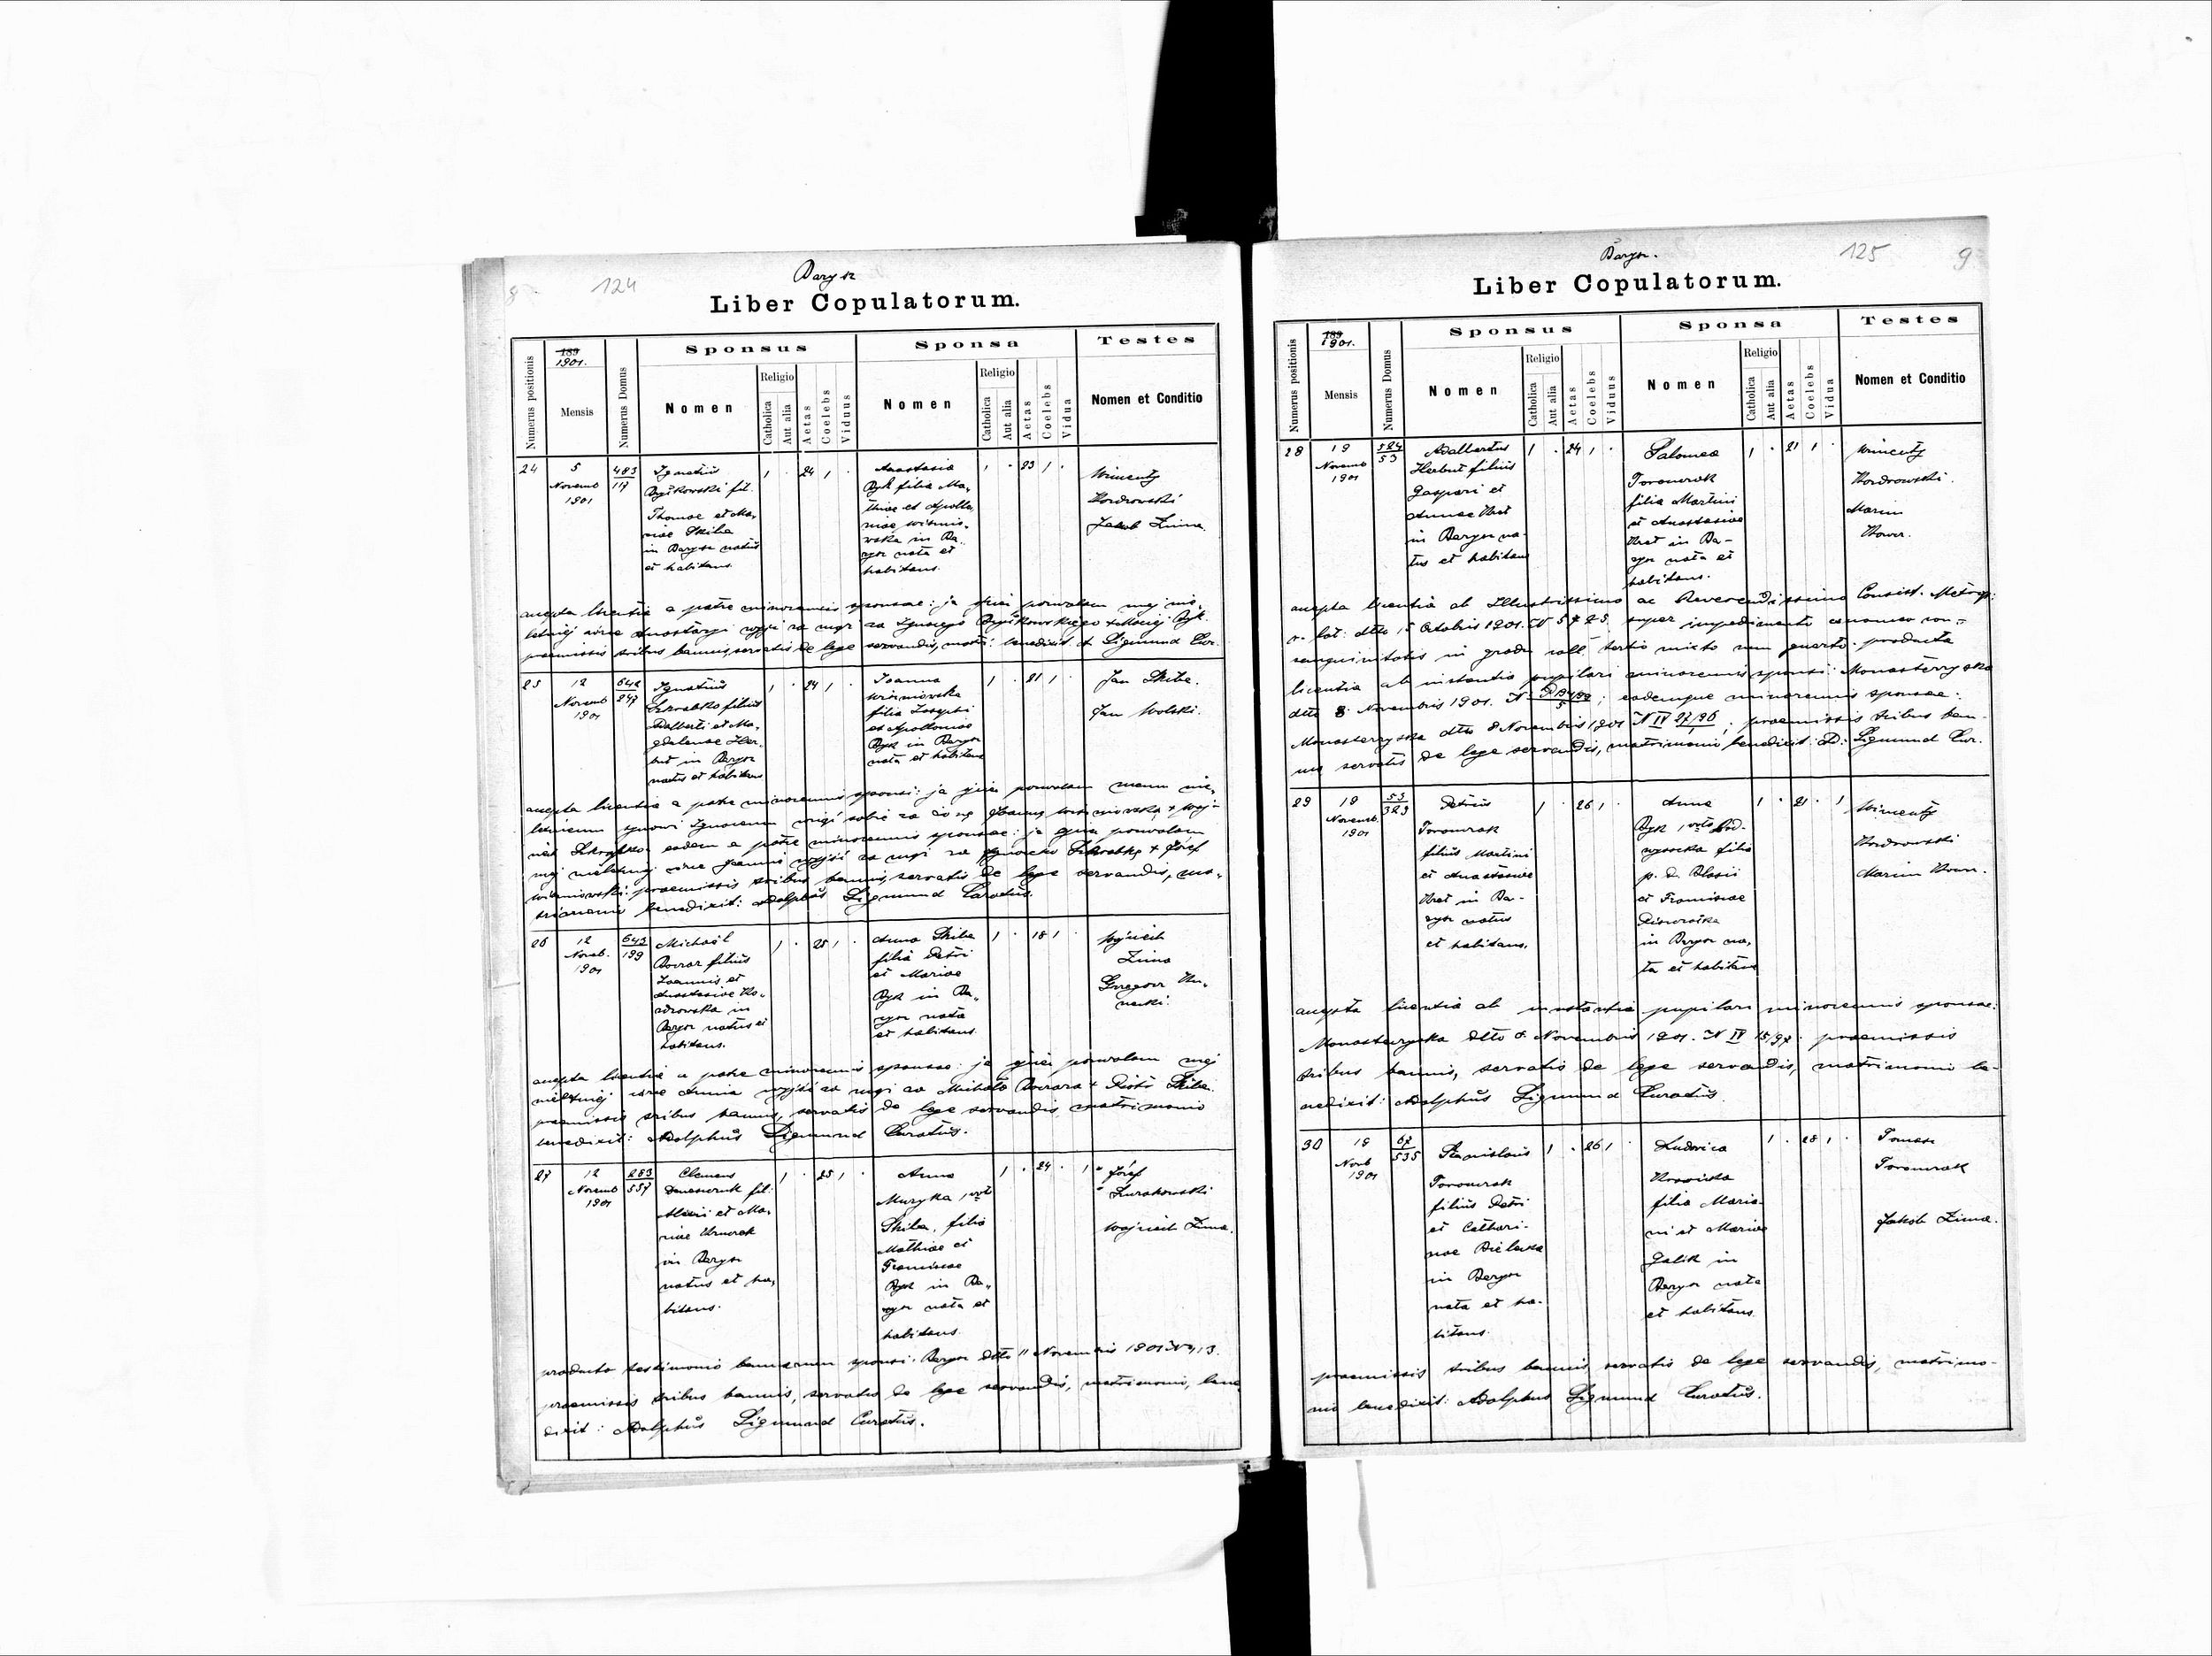 8
124
Barysz
Liber Copulatorum.
Numerus positionis
189
1901.
Mensis
Numerus Domus
Sponsus
Nomen
Religio
Catholica
Aut alia
Aetas
Coelebs
Viduus
Sponsa
Nomen
Religio
Catholica
Aut alia
Aetas
Coelebs
Vidua
Testes
Nomen et Conditio
24
5
Novemb
1901
483
117
Ignatius
fil.
Thomae et Ma,
riae Skiba
in Barysz natus
et habitans.
1 . 24 1 .
Anastasia
Byk filia Ma,
thiae et Apollo,
niae Wiśnio,
wska in Ba,
rysz nata et
habitans.
1 . 23 1 .
Wincenty
Kordrowski
Jakób Zima.
accepta licentia a patre minorennis sponsae: ja ojciec pozwalam mej nie,
letniej córce Anastazyi wyjść za mąż za Ignacego + Maciej Byk.
praemissis tribus bannis, servatis de lege servandis, matri: benedixit A Zigmund Cur.
25
12
Novemb
1901
642
247
Ignatius
Szkrabko filius
Adalberti et Ma,
gdalenae Her,
but in Barysz
natus et habitans
1 . 24 1 .
Joanna
Wiśniowska
filia Josephi
et Apolloniae
Byk in Barysz
nata et habitans
1 . 21 1 .
Jan Skiba.
Jan Wolski.
accepta licentia a patre minorennis sponsi: ja ojciec pozwalam memu nie,
letniemu synowi Ignacemu wziąć sobie za żonę Joannę Wiśniowską + Woj-
ciech Szkrabko: eadem a patre minorennis sponsae: ja ojciec pozwalam
mej nieletniej córce Joannie wyjść za mąż za Ignacego Szkrabkę + Józef
Wiśniowski: praemissis tribus bannis, servatis de lege servandis, ma,
trimonio benedixit: Adolphus Zigmund Curatus.
26
12
Novb.
1901
643
199
Michaël
filius
Joannis et
Anastasiae Ko,
rdrowska in
Barysz natus et
habitans.
1 . 25 1 .
Anna Skiba
filia Petri
et Mariae
Byk in Ba,
rysz nata
et habitans.
1 . 18 1 .
Wojciech
Zima
Gregorz
accepta licentia a patre minorennis sponsae: ja ojciec pozwalam mej
nieletniej córce Annie wyjść za mąż za Michała + Piotr Skiba.
praemissis tribus bannis, servatis de lege servandis matrimonio
benedixit: Adolphus Zigmund Curatus.
27
12
Novemb
1901
283
557
Clemens
fil:
et Ma,
riae
in Barysz
natus et ha,
bitans.
1 . 25 1 .
Anna
Muzyka 1 voto
Skiba, filia
Mathiae et
Franciscae
Byk in Ba,
rysz nata et
habitans.
1 . 24 . 1
Józef
Żurakowski
Wojciech Zima.
producto testimonio bannorum sponsi: Barysz dtto 11 Novembris 1901 N 113.
praemissis tribus bannis, servatis de lege servandis, matrimonio, bene
dixit: Adolphus Zigmund Curatus.
Barysz.
125
9
Liber Copulatorum.
Numerus positionis
189
1901.
Mensis
Numerus Domus
Sponsus
Nomen
Religio
Catholica
Aut alia
Aetas
Coelebs
Viduus
Sponsa
Nomen
Religio
Catholica
Aut alia
Aetas
Coelebs
Vidua
Testes
Nomen et Conditio
28
19
Novemb
1901
524
53
Adalbertus
Herbut filius
Gaspari et
Annae
in Barysz na-
tus et habitans
1 . 24 1 .
Salomea
filia Martini
et Anastasiae
in Ba-
rysz nata et
habitans.
1 . 21 1 .
Wincenty
Kordrowski.
Marcin
accepta licentia ab Illustrissimo ac Reverendissimo Consist. Metrop:
r. lat: dtto 15 Octobris 1901. N 5723. super impedimento canonico con-
sanguinitatis in gradu coll: tertio mixto cum quarto. producta
licentia ab instantia pupilari minorennis sponsi: Monasterzyska
dtto 8 Novembris 1901. N ; eademque minorennis sponsae:
Monasterzyska dtto 8 Novembris 1901 N IV 27/96; praemissis tribus ban-
nis servatis de lege servandis, matrimonio benedixit: A: Zigmund Cur.
29
19
Novemb.
1901
53
323
Petrus
filius Martini
et Anastasiae
in Ba-
rysz natus
et habitans.
1 . 26 1 .
Anna
Byk 1 voto Pod-
wysocka filia
p. d. Blasii
et Franciscae
in Barysz na,
ta et habitans
1 . 21 . 1
Wincenty
Kordrowski
Marcin
accepta licentia ab instantia pupilari minorennis sponsae:
Monasterzyska dtto 8. Novembris 1901. N IV 15/98. praemissis
tribus bannis, servatis de lege servandis, matrimonio be-
nedixit: Adolphus Zigmund Curatus.
30
19
Novb
1901
62
535
Stanislaus
filius Petri
et Cathari-
nae Bielecka
in Barysz
nata et ha-
bitans.
1 . 26 1 .
Ludovica
filia Maria-
ni et Mariae
Galik in
Barysz nata
et habitans.
1 . 28 1 .
Tomasz
Jakób Zima.
praemissis tribus bannis servatis de lege servandis, matrimo-
nio benedixit: Adolphus Zigmund Curatus.